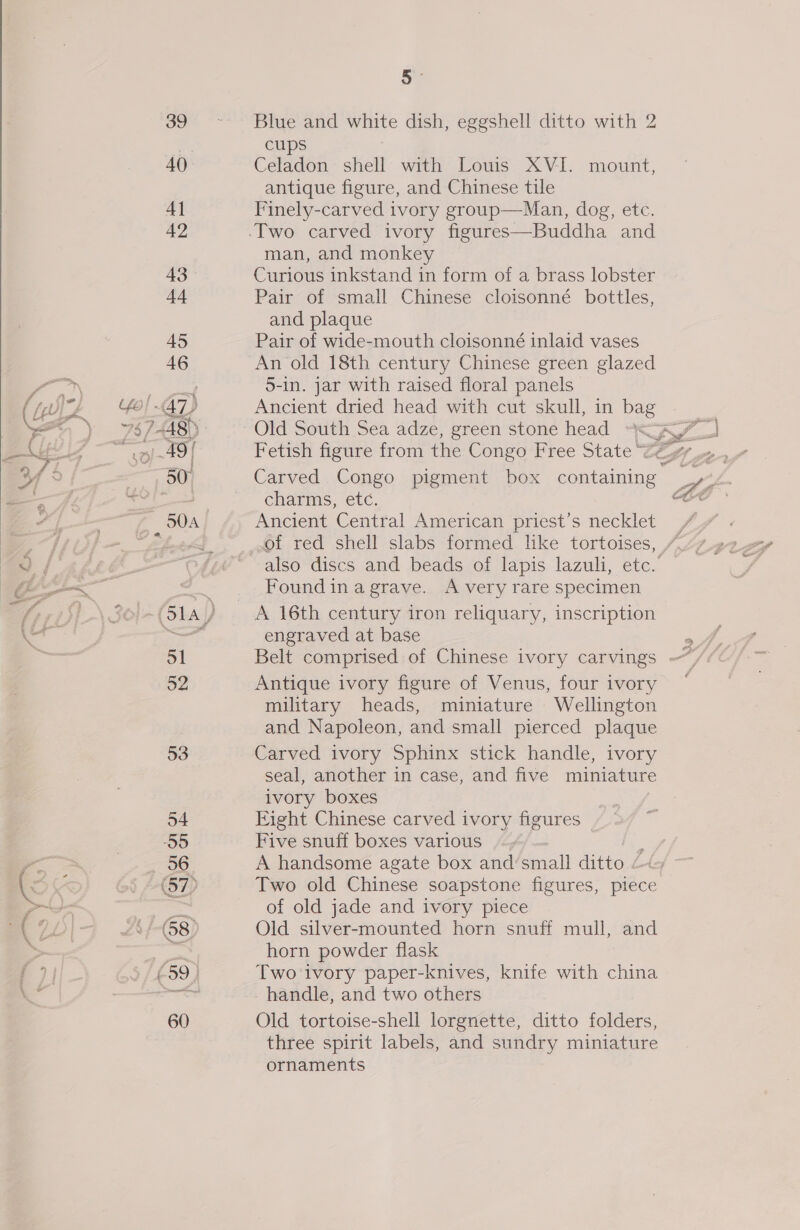 5
39 Blue and white dish, eggshell ditto with 2
cups
40 Celadon shell with Louis XVI. mount,
antique figure, and Chinese tile
41 Finely-carved ivory group—Man, dog, etc.
42 Two carved ivory figures—Buddha and
man, and monkey
43 Curious inkstand in form of a brass lobster
44 Pair of small Chinese cloisonné bottles,
and plaque
45 Pair of wide-mouth cloisonné inlaid vases
46 An old 18th century Chinese green glazed
5-in. jar with raised floral panels
47 Ancient dried head with cut skull, in bag
48 Old South Sea adze, green stone head
49 Fetish figure from the Congo Free State
50 Carved Congo pigment box containing
charms, etc.
50A Ancient Central American priest's necklet
of red shell slabs formed like tortoises,
also discs and beads of lapis lazuli, etc.
Found in a grave. A very rare specimen
51A A 16th century iron reliquary, inscription
engraved at base
51 Belt comprised of Chinese ivory carvings
52 Antique ivory figure of Venus, four ivory
military heads, miniature Wellington
and Napoleon, and small pierced plaque
53 Carved ivory Sphinx stick handle, ivory
seal, another in case, and five miniature
ivory boxes
54 Eight Chinese carved ivory figures
55 Five snuff boxes various
56 A handsome agate box and small ditto
57 Two old Chinese soapstone figures, piece
of old jade and ivory piece
58 Old silver-mounted horn snuff mull, and
horn powder flask
59 Two ivory paper-knives, knife with china
handle, and two others
60 Old tortoise-shell lorgnette, ditto folders,
three spirit labels, and sundry miniature
ornaments